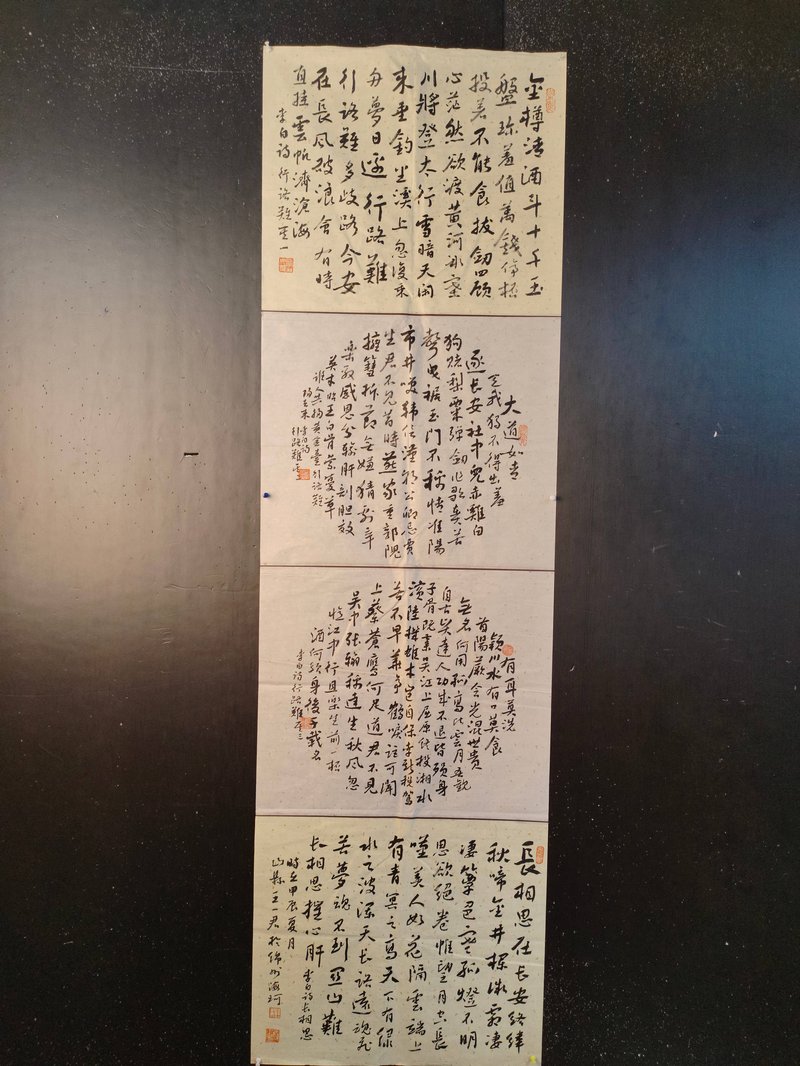 金樽清酒斗十千玉
盤珎羞值萬錢停杯
投箸不能食拔劍四顧
心茫然欲渡黃河冰塞
川將登太行雪暗天閑
來垂釣坐溪上忽復乘
舟夢日邊行路難
行路難多歧路今安
在長風破浪會有時
直挂雲帆濟滄海
李白詩行路難其一
大道如青
天我獨不得出羞
逐長安社中兒赤雞白
狗賭梨栗彈劍作歌奏苦
聲曳裾王門不稱情淮陽
市井哽韓信漢朝公卿忌賈
生君不見昔時燕家重郭隗
擁篲折節無嫌猜劇辛
樂毅感恩分輸肝剖胆效
英才昭王白骨縈蔓草
誰人更掃黃金臺行路難
歸去來李白詩
行路難其二
有耳莫洗
潁川水有口莫食
首陽蕨含光混世貴
無名何用孤高比雲月吾觀
自古賢達人功成不退皆殞身
子胥既棄吳江上屈原終投湘水
濱陸機雄才豈自保李斯稅駕
苦不早華亭鶴唳詎可聞
上蔡蒼鷹何足道君不見
吳中張翰稱達生秋風忽
憶江東行且樂生前一杯
酒何須身後千載名
李白詩行路難其三
長相思在長安絡緯
秋啼金井欄微霜淒
淒簟色寒孤燈不明
思欲絕卷帷望月空長
嘆美人如花隔雲端上
有青冥之高天下有淥
水之波瀾天長路遠魂飛
苦夢魂不到關山難
長相思摧心肝李白詩長相思
時在甲辰夏月
山縣王一君於錦州海珂